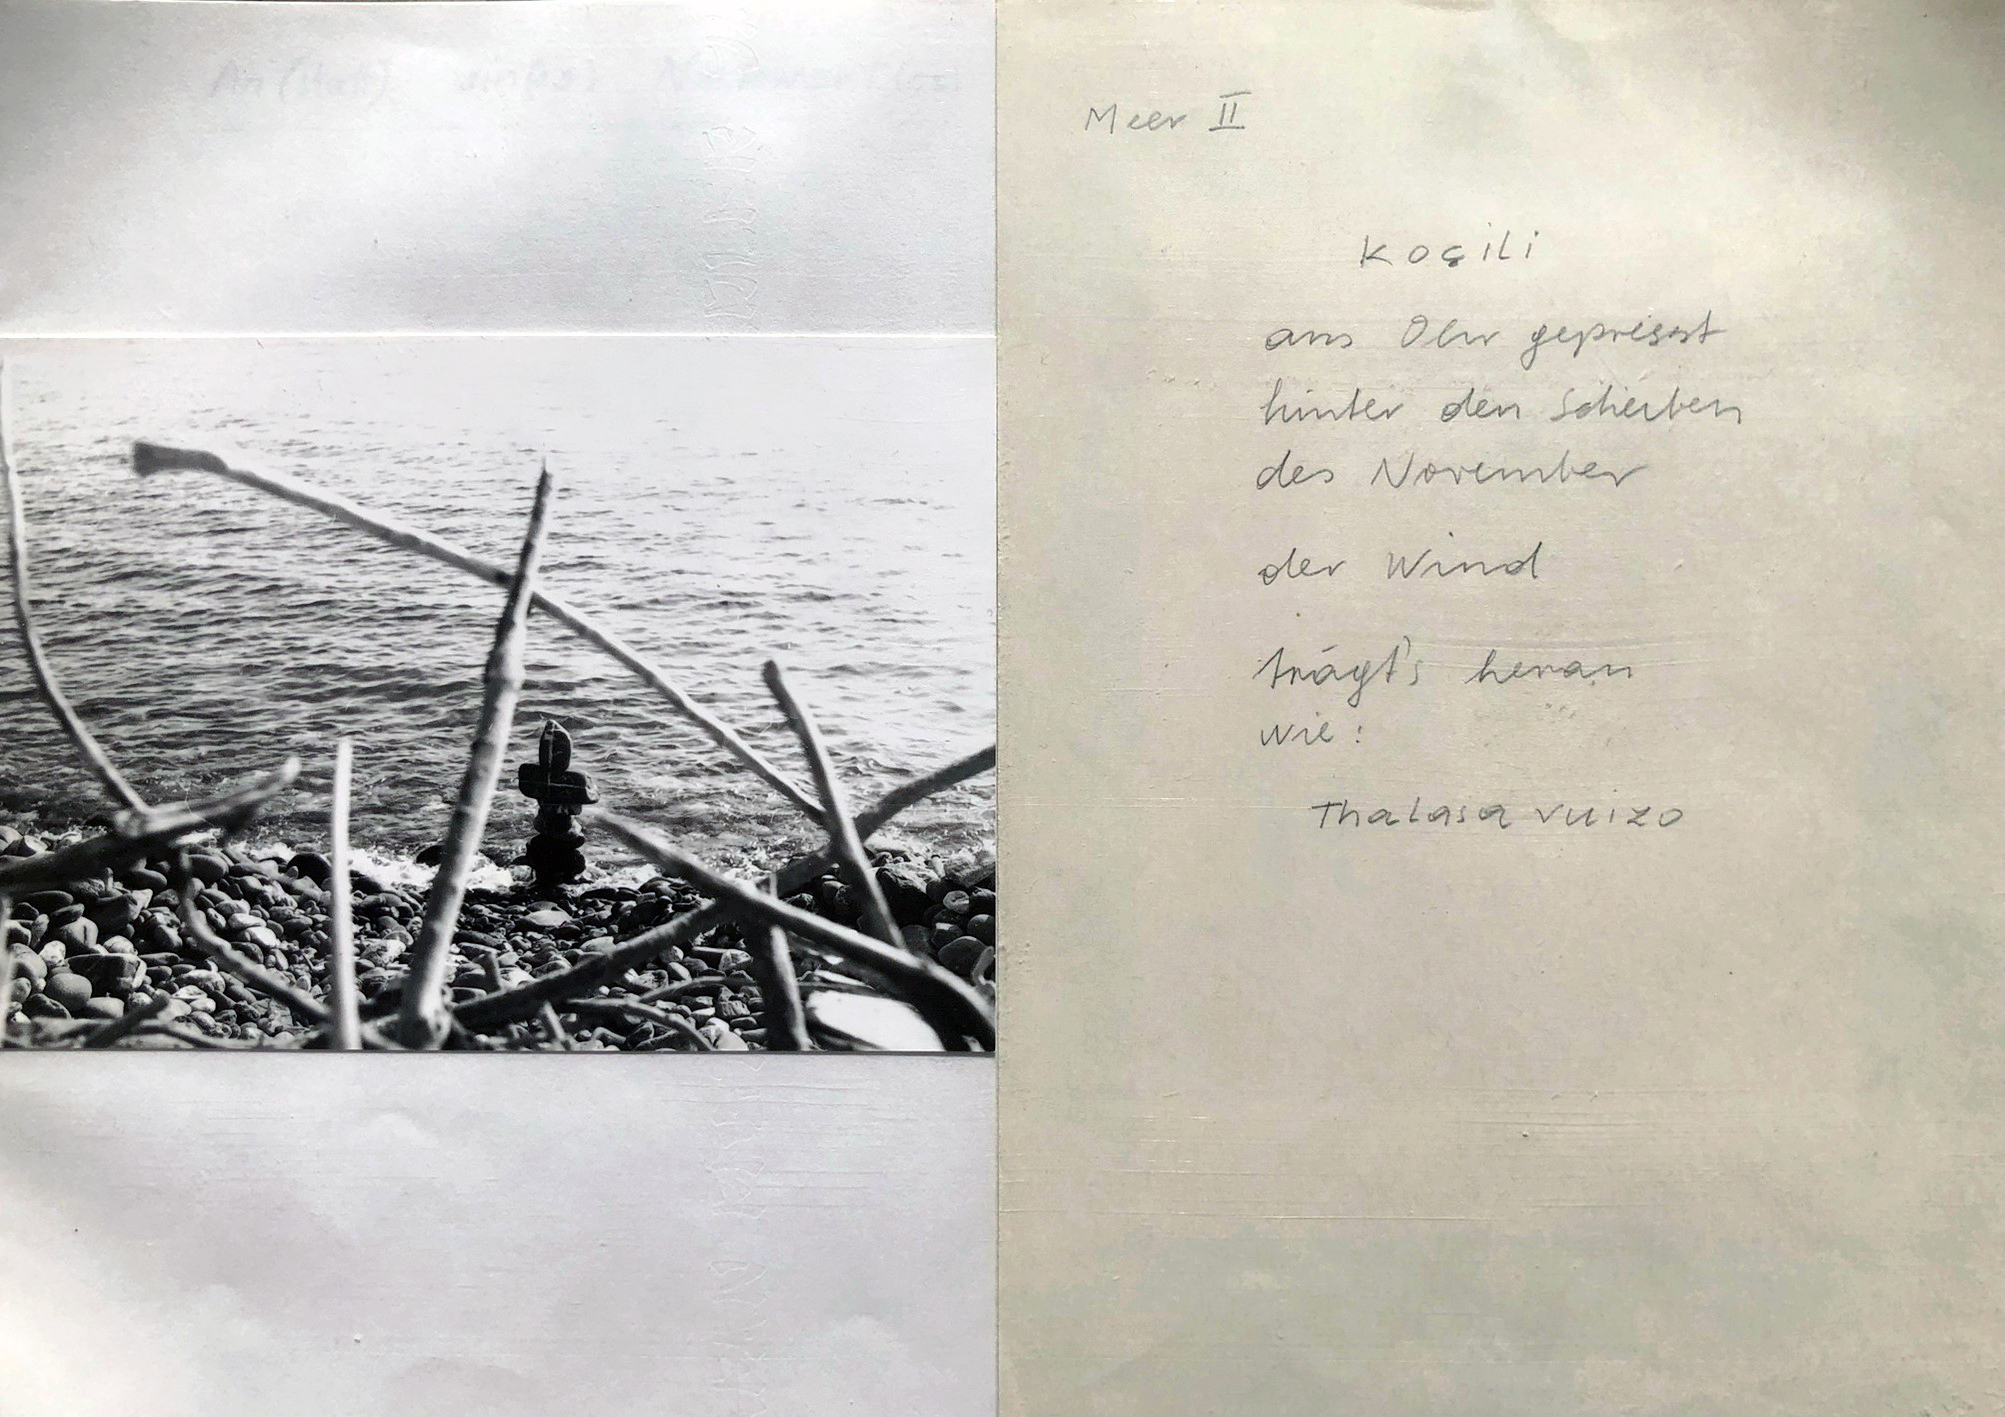 Meer II
Koçili
ans Ohr gepresst
hinter den Scheiben
des November
der Wind
trägt's heran
wie:
Thalasa vuizo